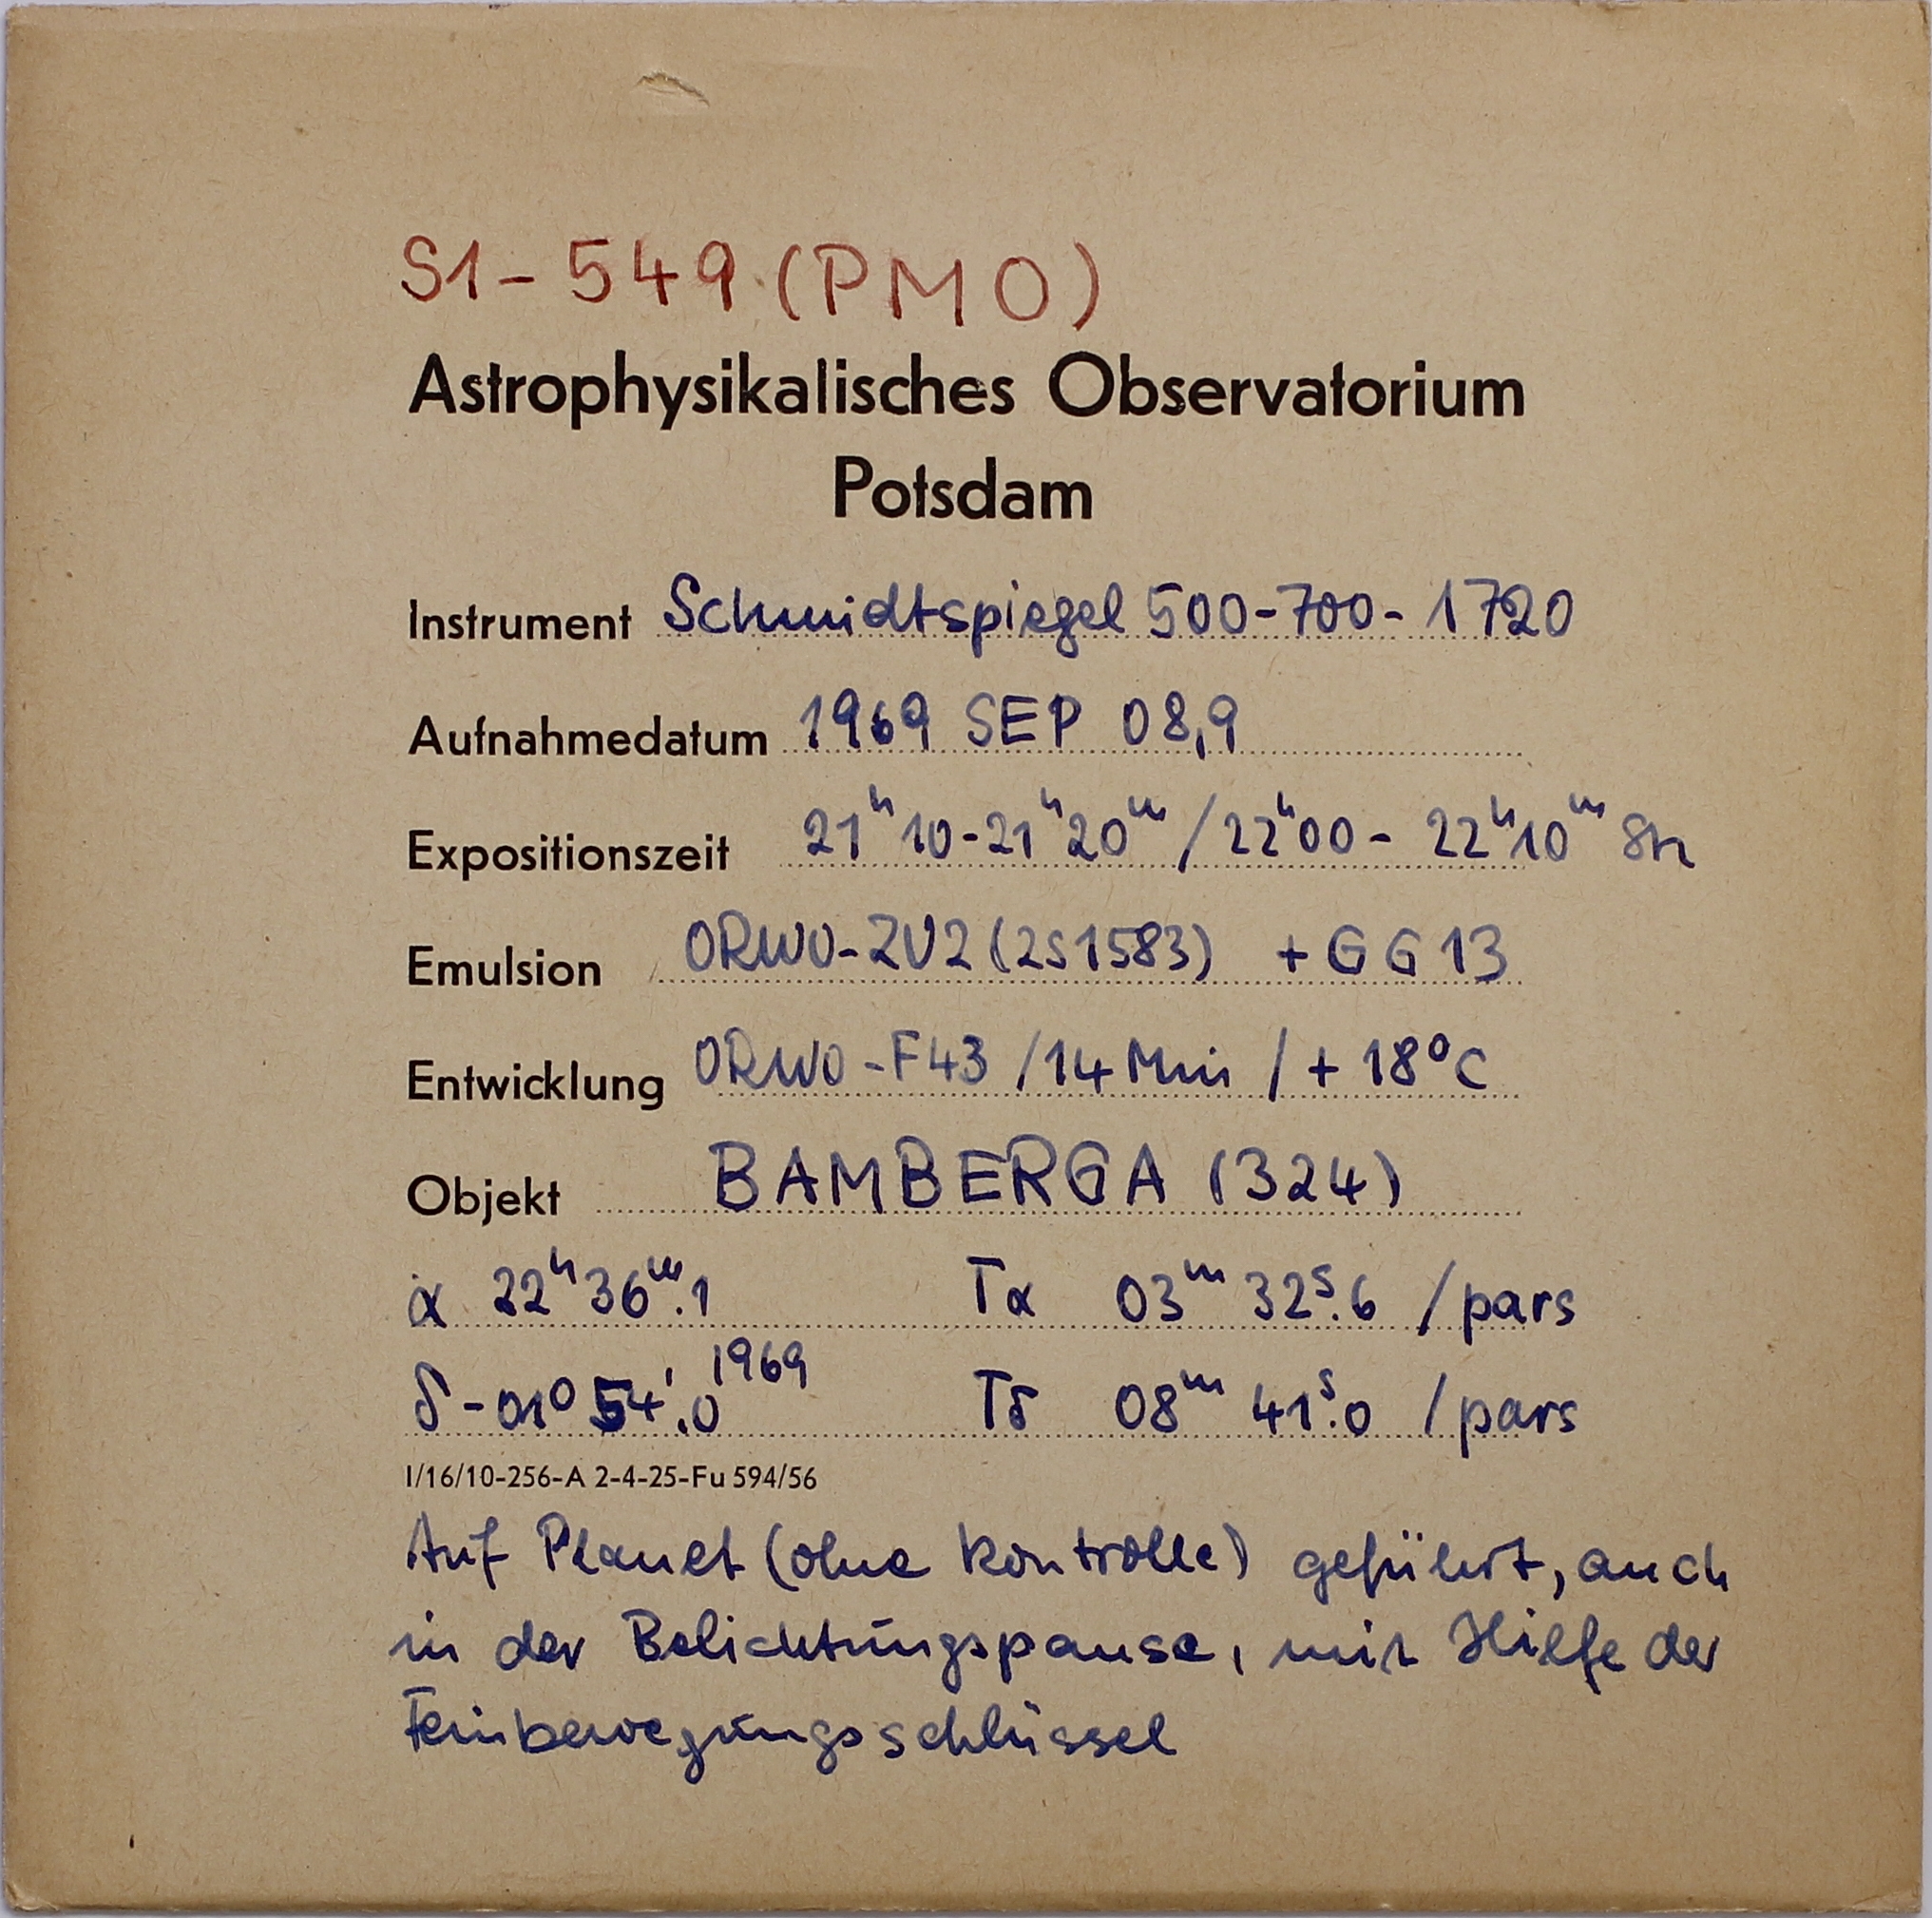 S1-549 (PMO)
Astrophysikalisches Observatorium
Potsdam
Instrument Schmidtspiegel 500-700-1720
Aufnahmedatum 1969 SEP 08,9
Expositionszeit 21ʰ10-21ʰ20ᵐ/22ʰ00-22ʰ10ᵐ
Emulsion ORWO-ZU2 (251583) +GG13
Entwicklung ORWO-F43 /14 Min / +18°C
Objekt BAMBERGA (324)
α 22ʰ36ᵐ.1 Tα 03ᵐ 32ˢ.6 /pars
δ -01° 54'.0 1969 Tδ 08ᵐ 41ˢ.0 /pars
I/16/10-256-A 2-4-25-Fu 594/56
Auf Planet (ohne Kontrolle) geführt, auch
in der Belichtungspause, mit Hilfe der
Feinbewegungsschlüssel